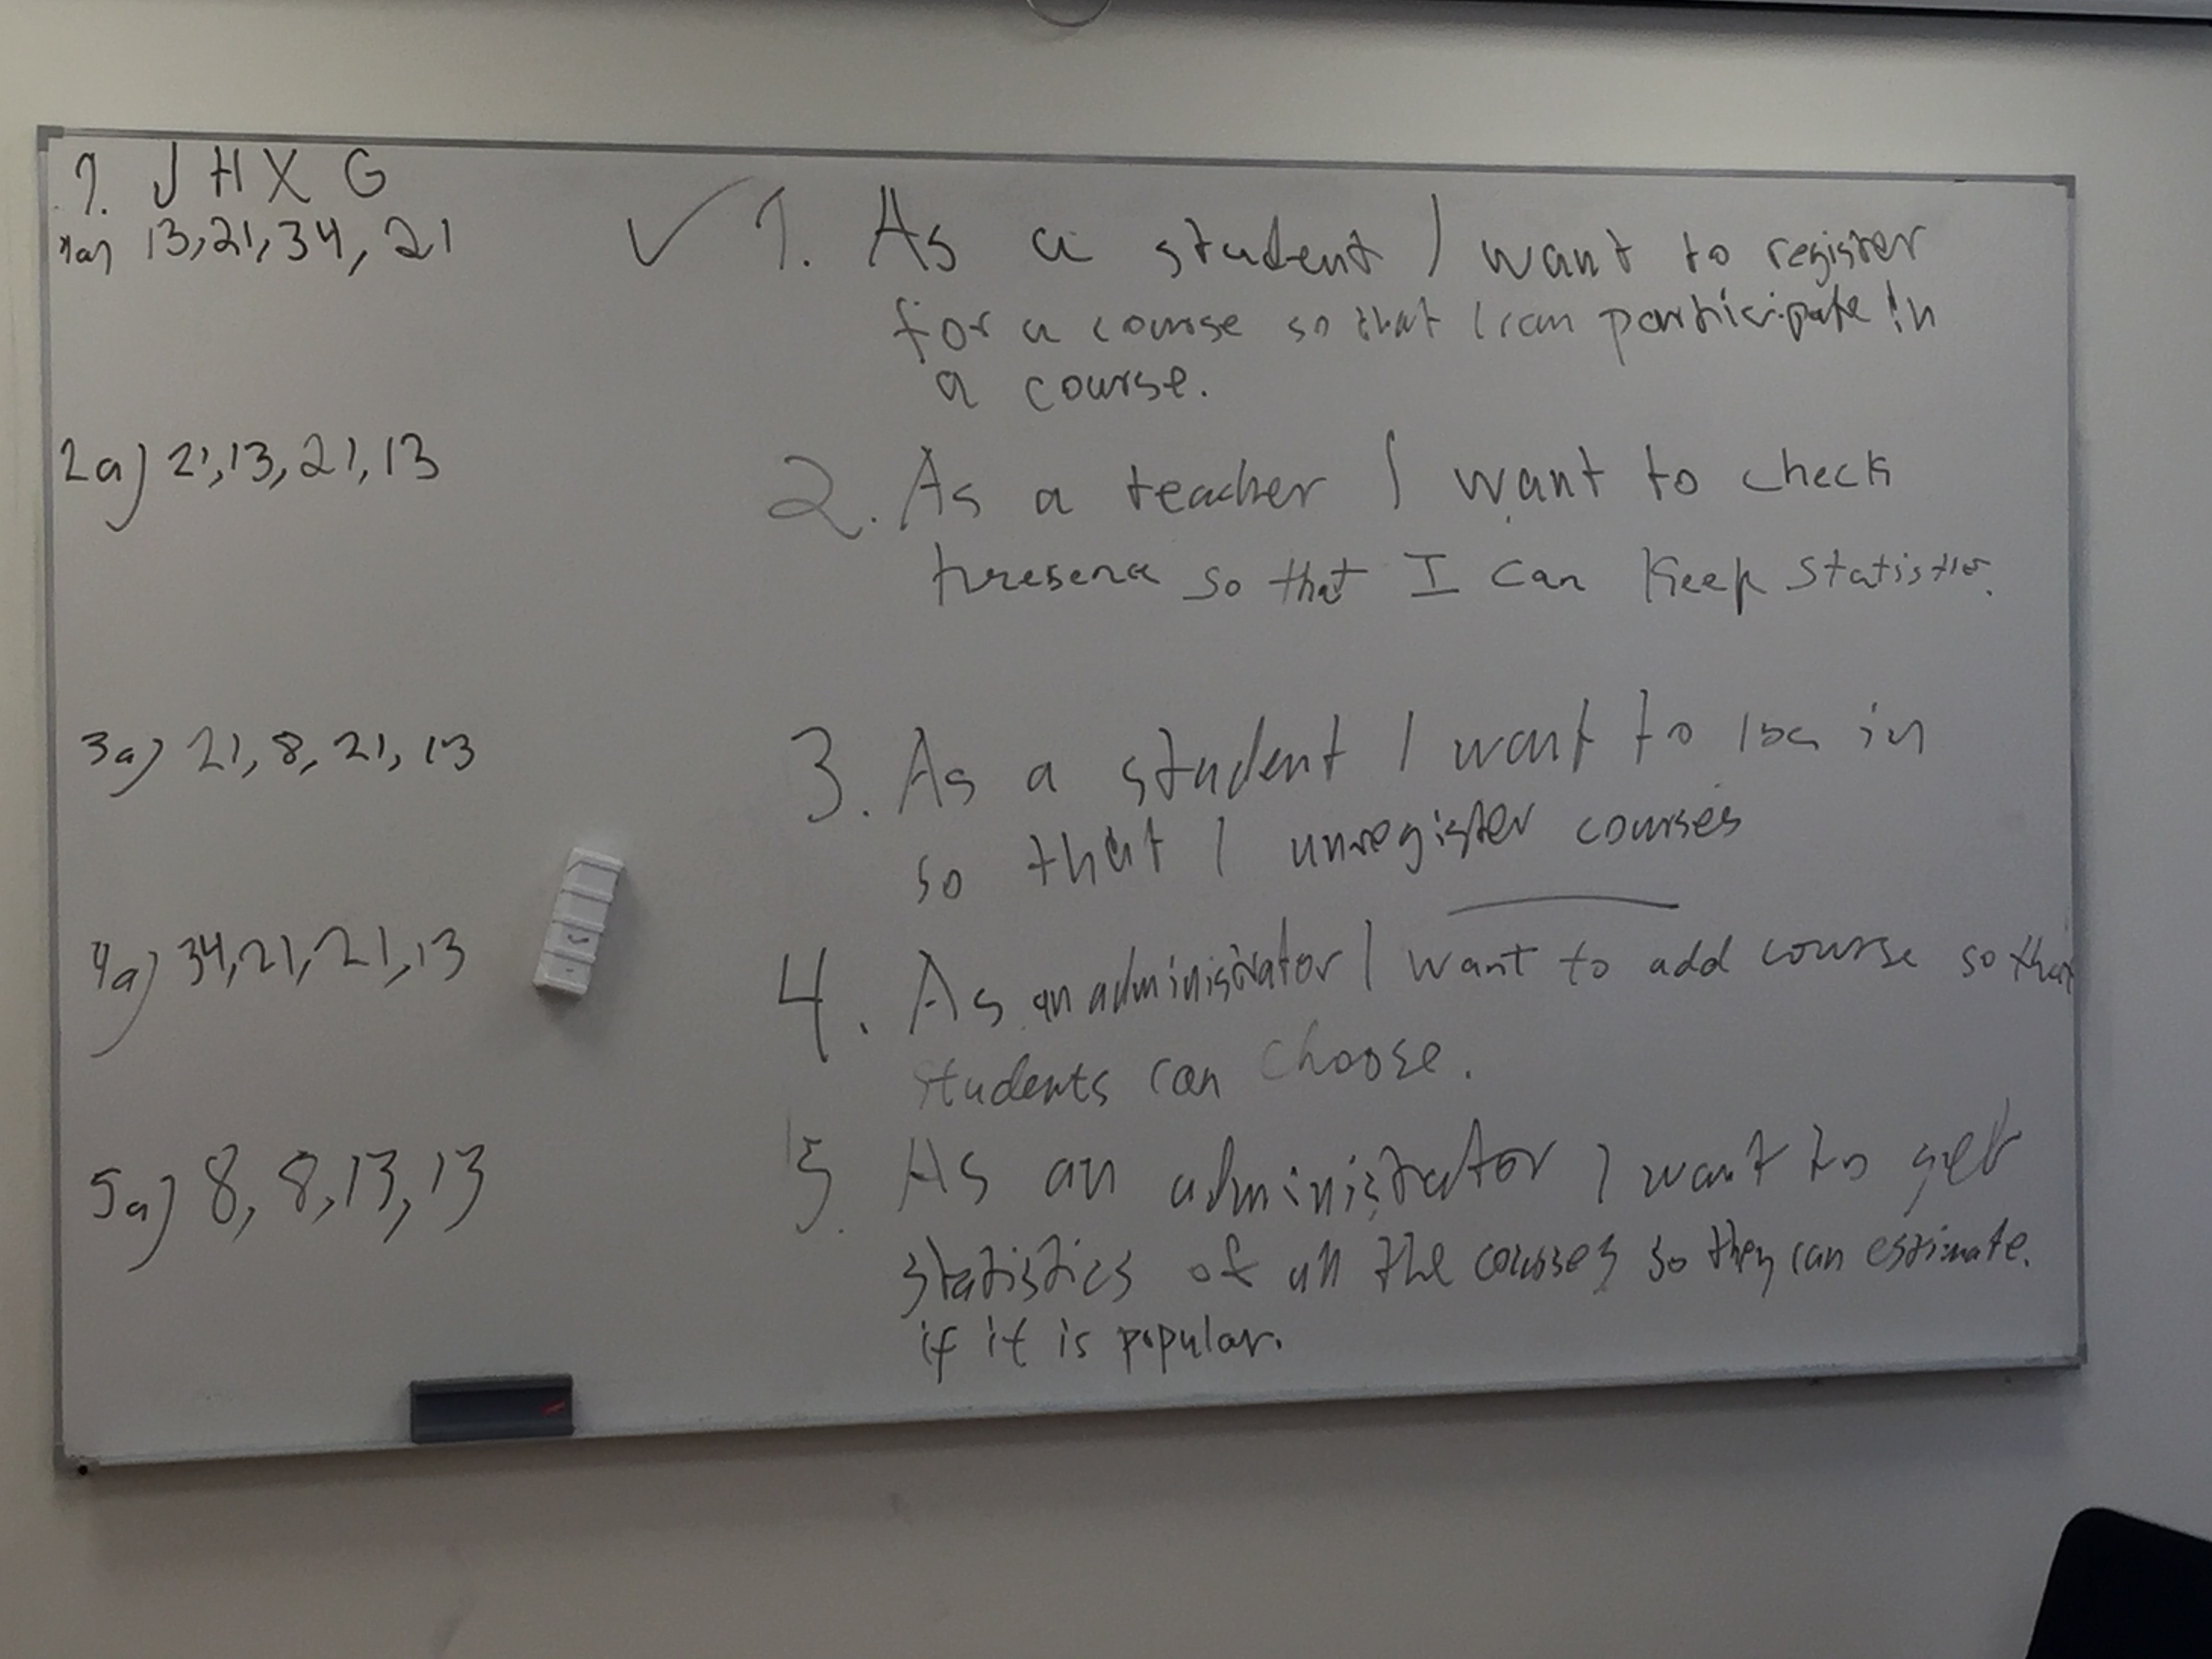 1. J H X G
1a) 13,21,34,21
2a) 21,13,21,13
3a) 21,8,21,13
4a) 34,21,21,13
5a) 8,8,13,13
1. As a student I want to register
for a course so that I can participate in
a course.
2. As a teacher I want to check
presence so that I can keep statistics.
3. As a student I want to log in
so that I unregister courses
4. As an administrator I want to add course so that
students can choose.
5. As an administrator I want to get
statistics of all the courses so they can estimate.
if it is popular.